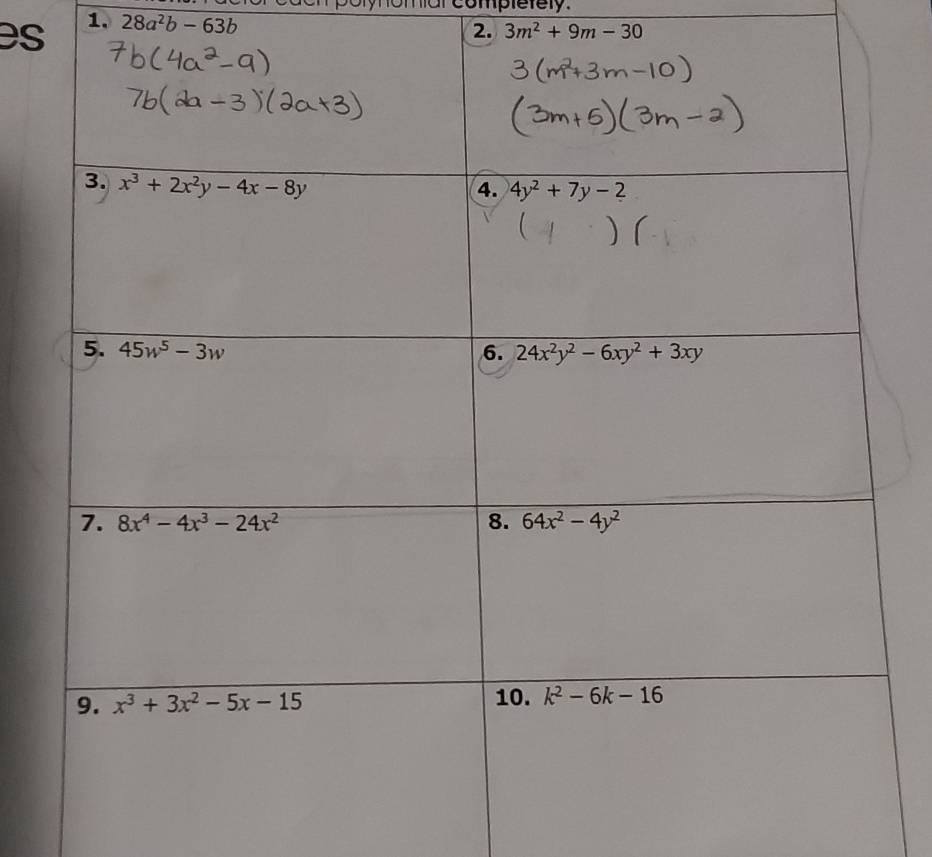 es
completely.
1. 28a²b − 63b
7b(4a²-9)
7b(2a-3)(2a+3)
2. 3m² + 9m − 30
3(m²+3m-10)
(3m+5)(3m-2)
3. x³ + 2x²y − 4x − 8y
4. 4y² + 7y − 2
( 1 ) (
5. 45w⁵ − 3w
6. 24x²y² − 6xy² + 3xy
7. 8x⁴ − 4x³ − 24x²
8. 64x² − 4y²
9. x³ + 3x² − 5x − 15
10. k² − 6k − 16